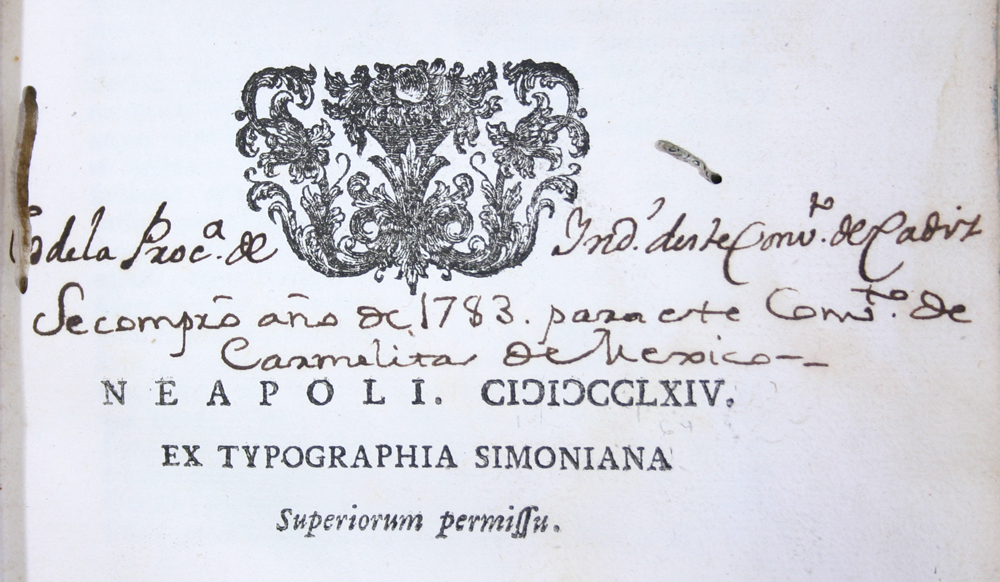 de la Proc.ª de Ind.ˢ deste Conv.ᵗᵒ de Cadiz
Se compró año de 1783. para este Conv.ᵗᵒ de
Carmelitas de Mexico--
NEAPOLI. CIƆIƆCCLXIV.
EX TYPOGRAPHIA SIMONIANA
Superiorum permiſſu.